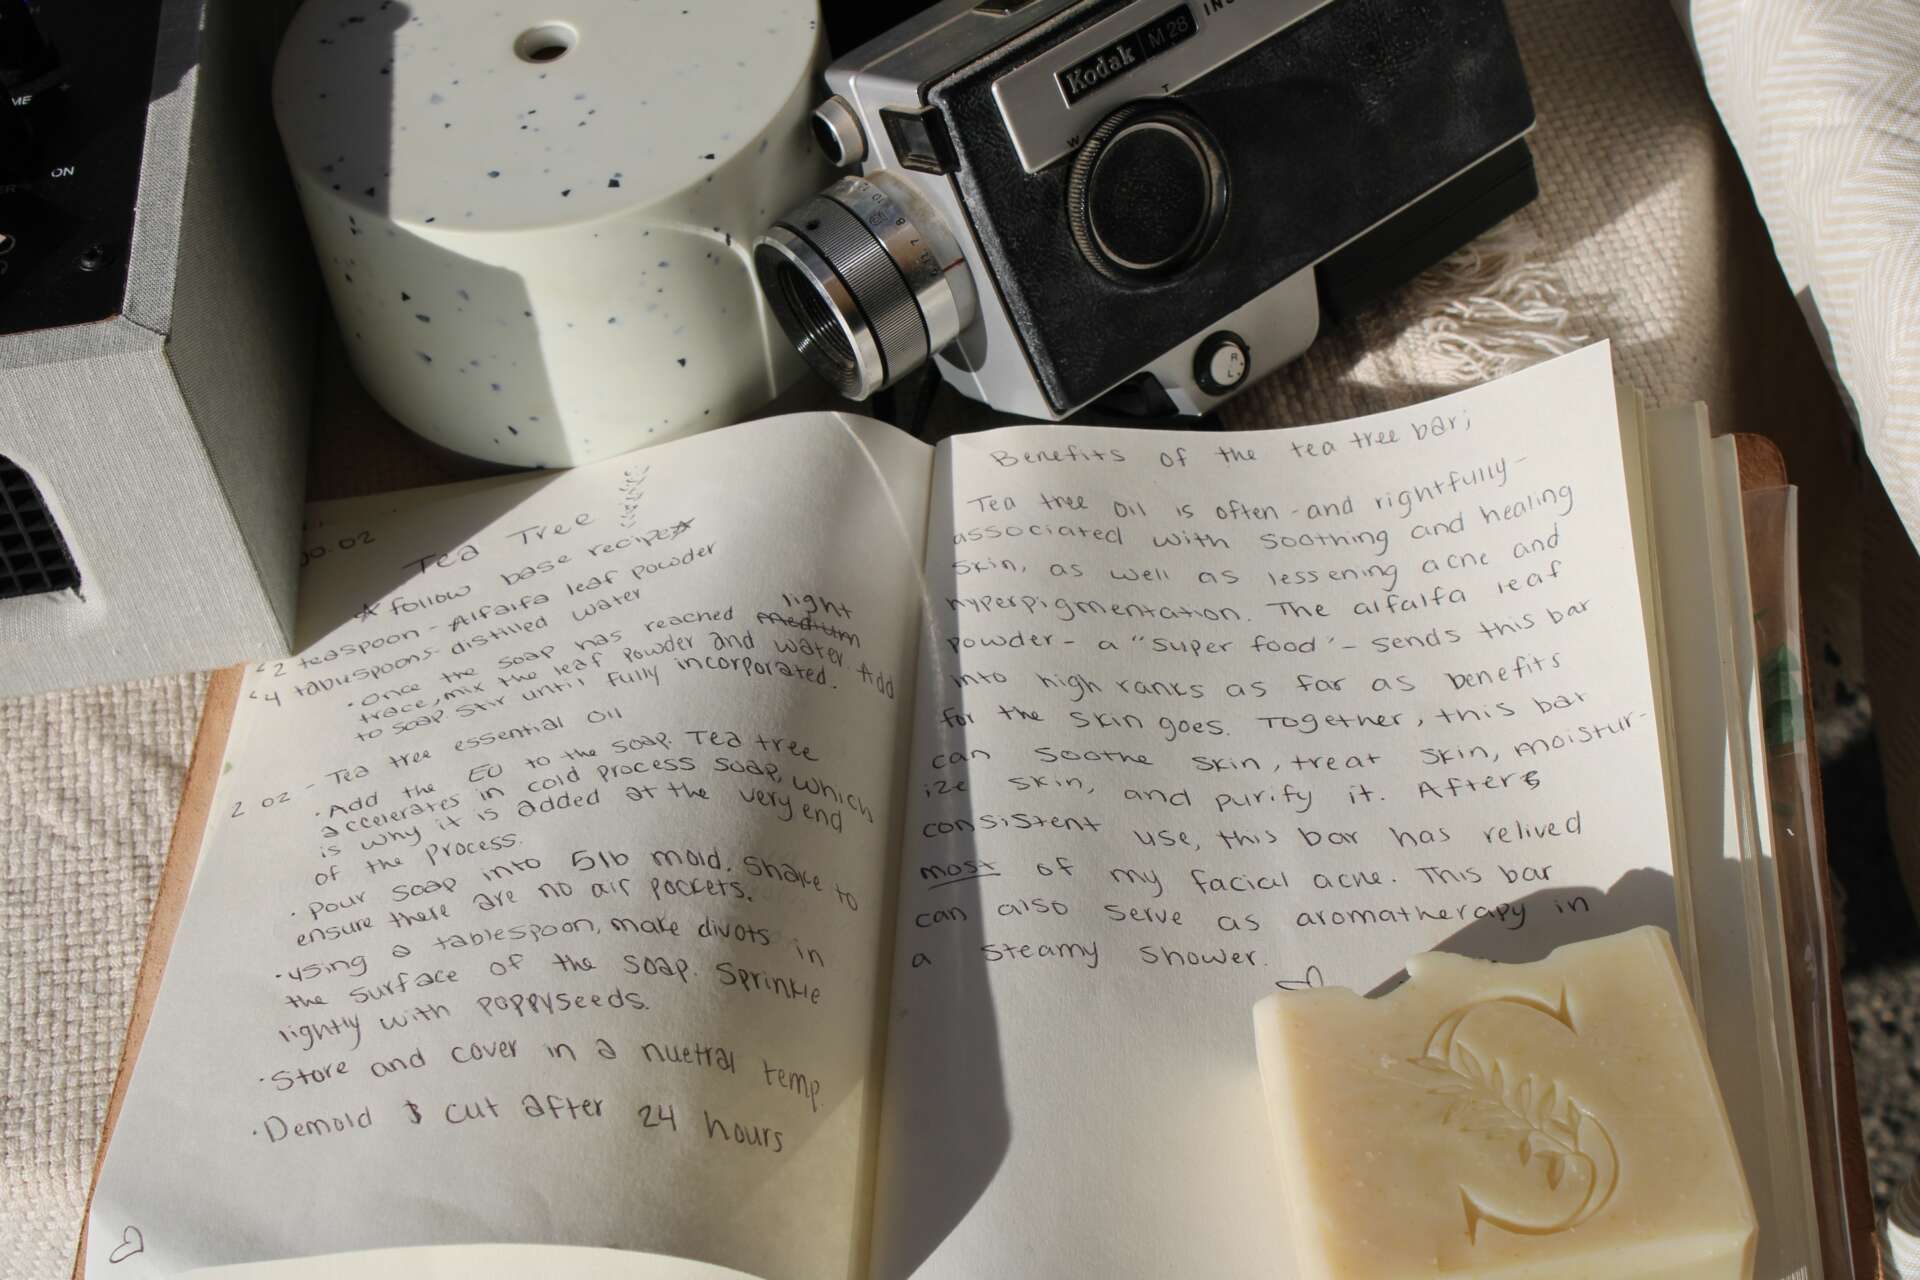 ME +
ON
Kodak M 28
T
W
R
L
Tea Tree
☆ follow base recipe ☆
2 teaspoon - Alfalfa leaf powder
4 tablespoons - distilled water
light
• Once the soap has reached medium
trace, mix the leaf powder and water. Add
to soap. Stir until fully incorporated.
2 oz - Tea tree essential Oil
• Add the EO to the soap. Tea tree
accelerates in cold process soap, which
is why it is added at the very end
of the process.
• Pour soap into 5lb mold. Shake to
ensure there are no air pockets.
• using a tablespoon, make divots in
the surface of the soap. Sprinkle
lightly with poppyseeds.
• Store and cover in a nuetral temp.
• Demold & cut after 24 hours
Benefits of the tea tree bar;
Tea tree oil is often - and rightfully -
associated with soothing and healing
skin, as well as lessening acne and
hyperpigmentation. The alfalfa leaf
powder - a "super food" - sends this bar
into high ranks as far as benefits
for the skin goes. Together, this bar
can soothe skin, treat skin, moistur-
ize skin, and purify it. After
consistent use, this bar has relived
most of my facial acne. This bar
can also serve as aromatherapy in
a steamy shower.
S